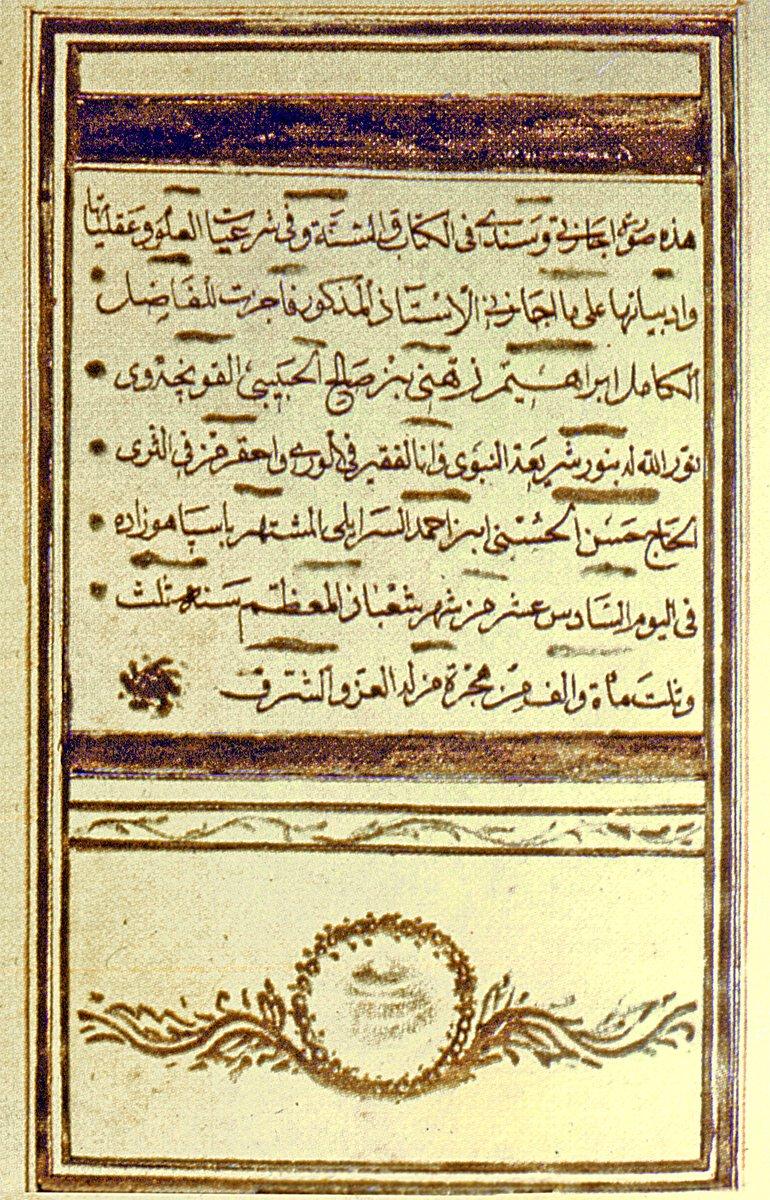 هذه صورة اجازتي وسندي في الكتاب والسنة وفي شرعيات العلوم وعقلياتها
وادبياتها على ما اجازني الاستاذ المذكور فاجزت للفاضل
الكامل ابراهيم ذهني بن صالح الحبيبي القونجه وى
نور الله له بنور شريعة النبوى وانا الفقير في الورى واحقر من في الثرى
الحاج حسن الحسني ابن احمد السرايلى المشتهر باسپاهوزاده
في اليوم السادس عشر من شهر شعبان المعظم سنه ثلث
وثلث مأة والف من هجرة من له العز والشرف